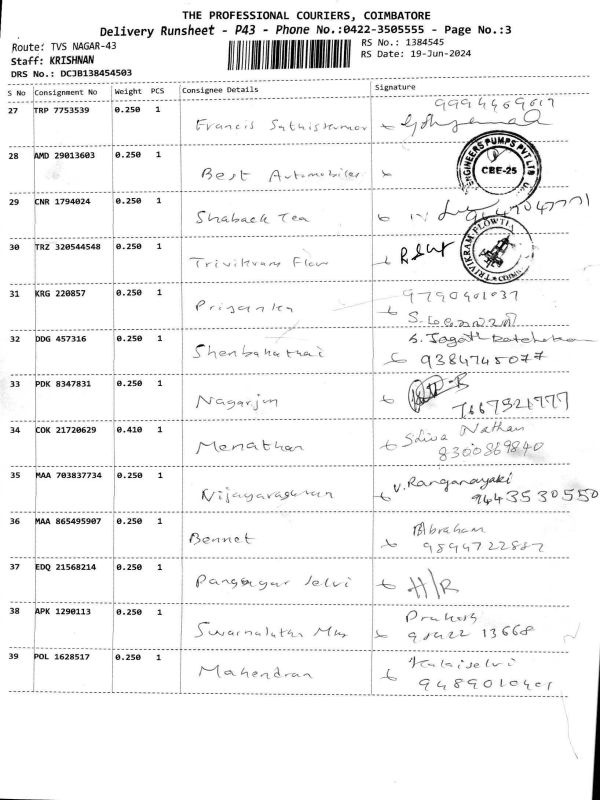 THE PROFESSIONAL COURIERS, COIMBATORE
Delivery Runsheet - P43 - Phone No.:0422-3505555 - Page No.:3
Route: TVS NAGAR-43
RS No.: 1384545
Staff: KRISHNAN
RS Date: 19-Jun-2024
DRS No.: DCJB138454503
S No Consignment No Weight PCS Consignee Details Signature
27 TRP 7753539 0.250 1 Francis Sathishkumar
28 AMD 29013603 0.250 1 Best Automobiles
ENGINEERS PUMPS PVT LTD
CBE-25
29 CNR 1794024 0.250 1 Shaback Tea
30 TRZ 320544548 0.250 1 Trivikram Flow
TRIVIKRAM-FLOWTI
31 KRG 220857 0.250 1 Priyanka
32 DDG 457316 0.250 1 Shenbahathai S. Jagath
9384745077
33 PDK 8347831 0.250 1 Nagarjun
7667921777
34 COK 21720629 0.410 1 Menathan Shiva Nathan
8300869840
35 MAA 703837734 0.250 1 V. Ranganayaki
9443530550
36 MAA 865495907 0.250 1 Bennet Abraham
9894722882
37 EDQ 21568214 0.250 1 selvi H/R
38 APK 1290113 0.250 1 Prakash
98422 13668
39 POL 1628517 0.250 1 Mahendran Kalaiselvi
9489010401